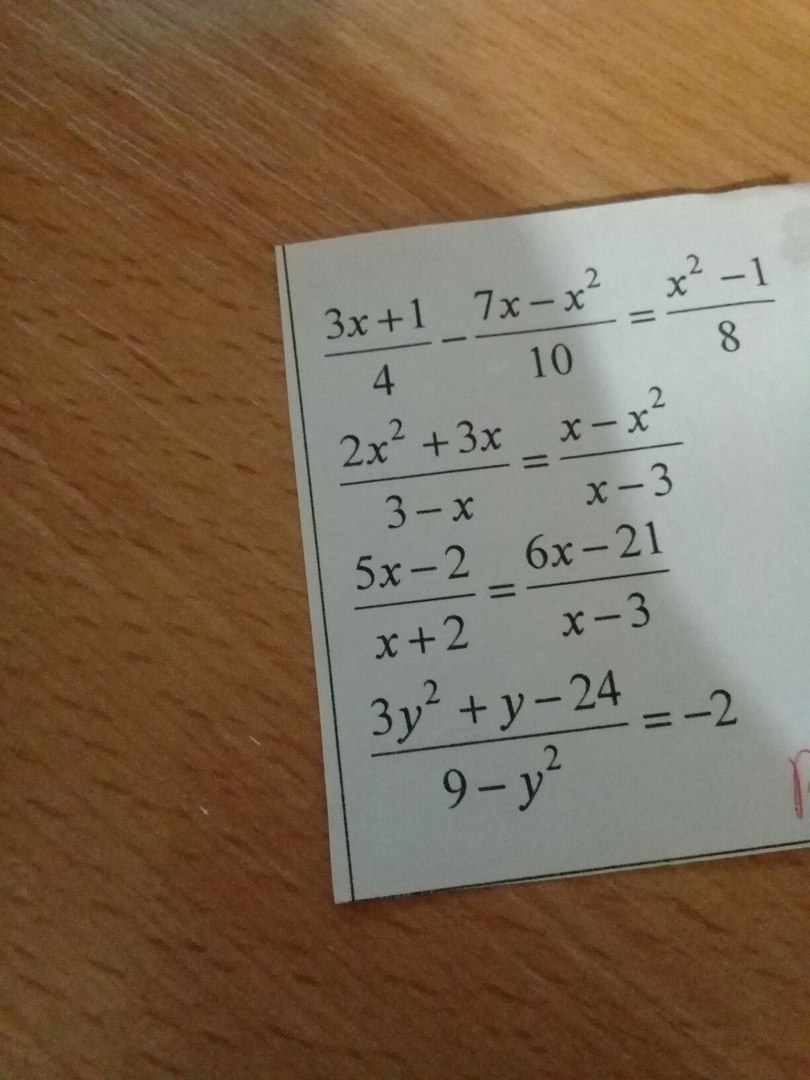 \frac{3x+1}{4} - \frac{7x-x^2}{10} = \frac{x^2-1}{8}
\frac{2x^2+3x}{3-x} = \frac{x-x^2}{x-3}
\frac{5x-2}{x+2} = \frac{6x-21}{x-3}
\frac{3y^2+y-24}{9-y^2} = -2